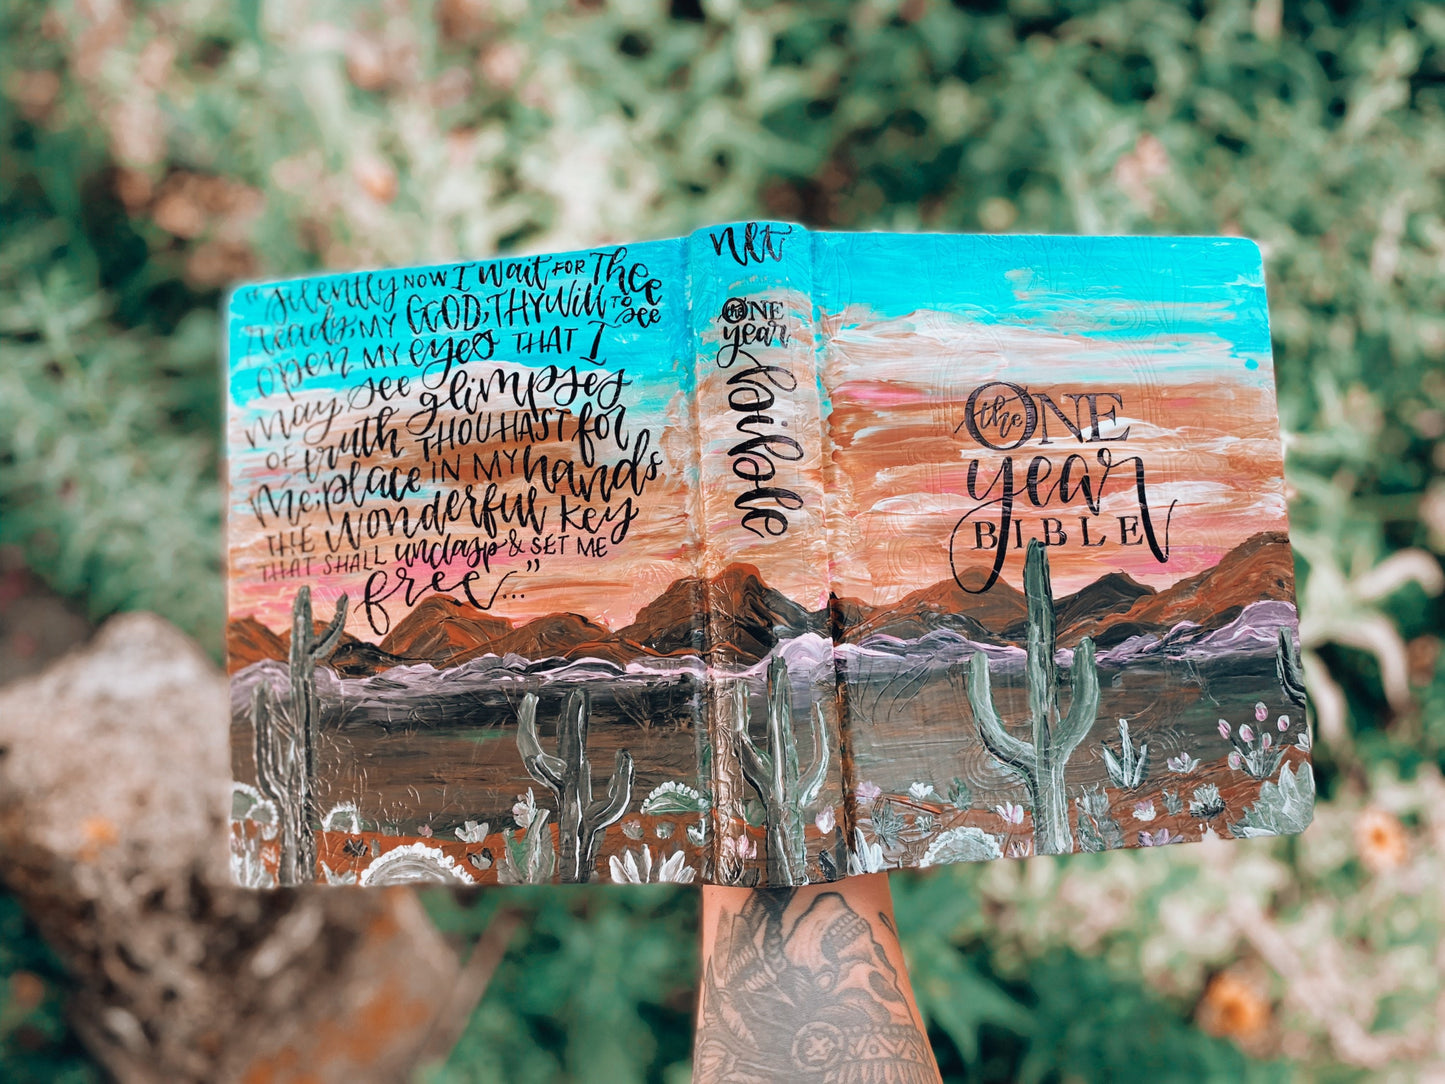 "Silently NOW I wait FOR Thee
Ready, MY GOD, THY Will TO See
open MY eyes THAT I
may see glimpses
OF truth THOU HAST for
Me; place IN MY hands
THE wonderful key
THAT SHALL unclasp & SET ME
free..."
nlt
the ONE
year
bible
the ONE
year
BIBLE